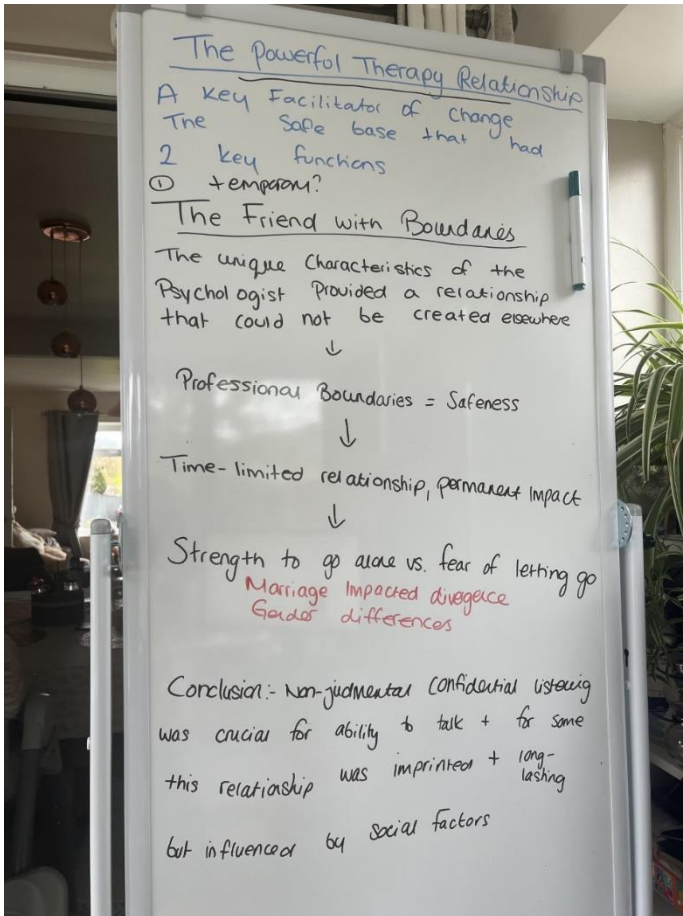 The Powerful Therapy Relationship
A Key Facilitator of change
The Safe base that had
2 key functions
① temporary?
The Friend with Boundaries
The unique Characteristics of the
Psychologist Provided a relationship
that could not be created elsewhere
↓
Professional Boundaries = Safeness
↓
Time-limited relationship, permanent Impact
↓
Strength to go alone vs. fear of letting go
Marriage Impacted divegence
Gender differences
Conclusion:- Non-judmental confidential listening
was crucial for ability to talk + for some
this relationship was imprinted + long-
lasting
but influenced by social factors